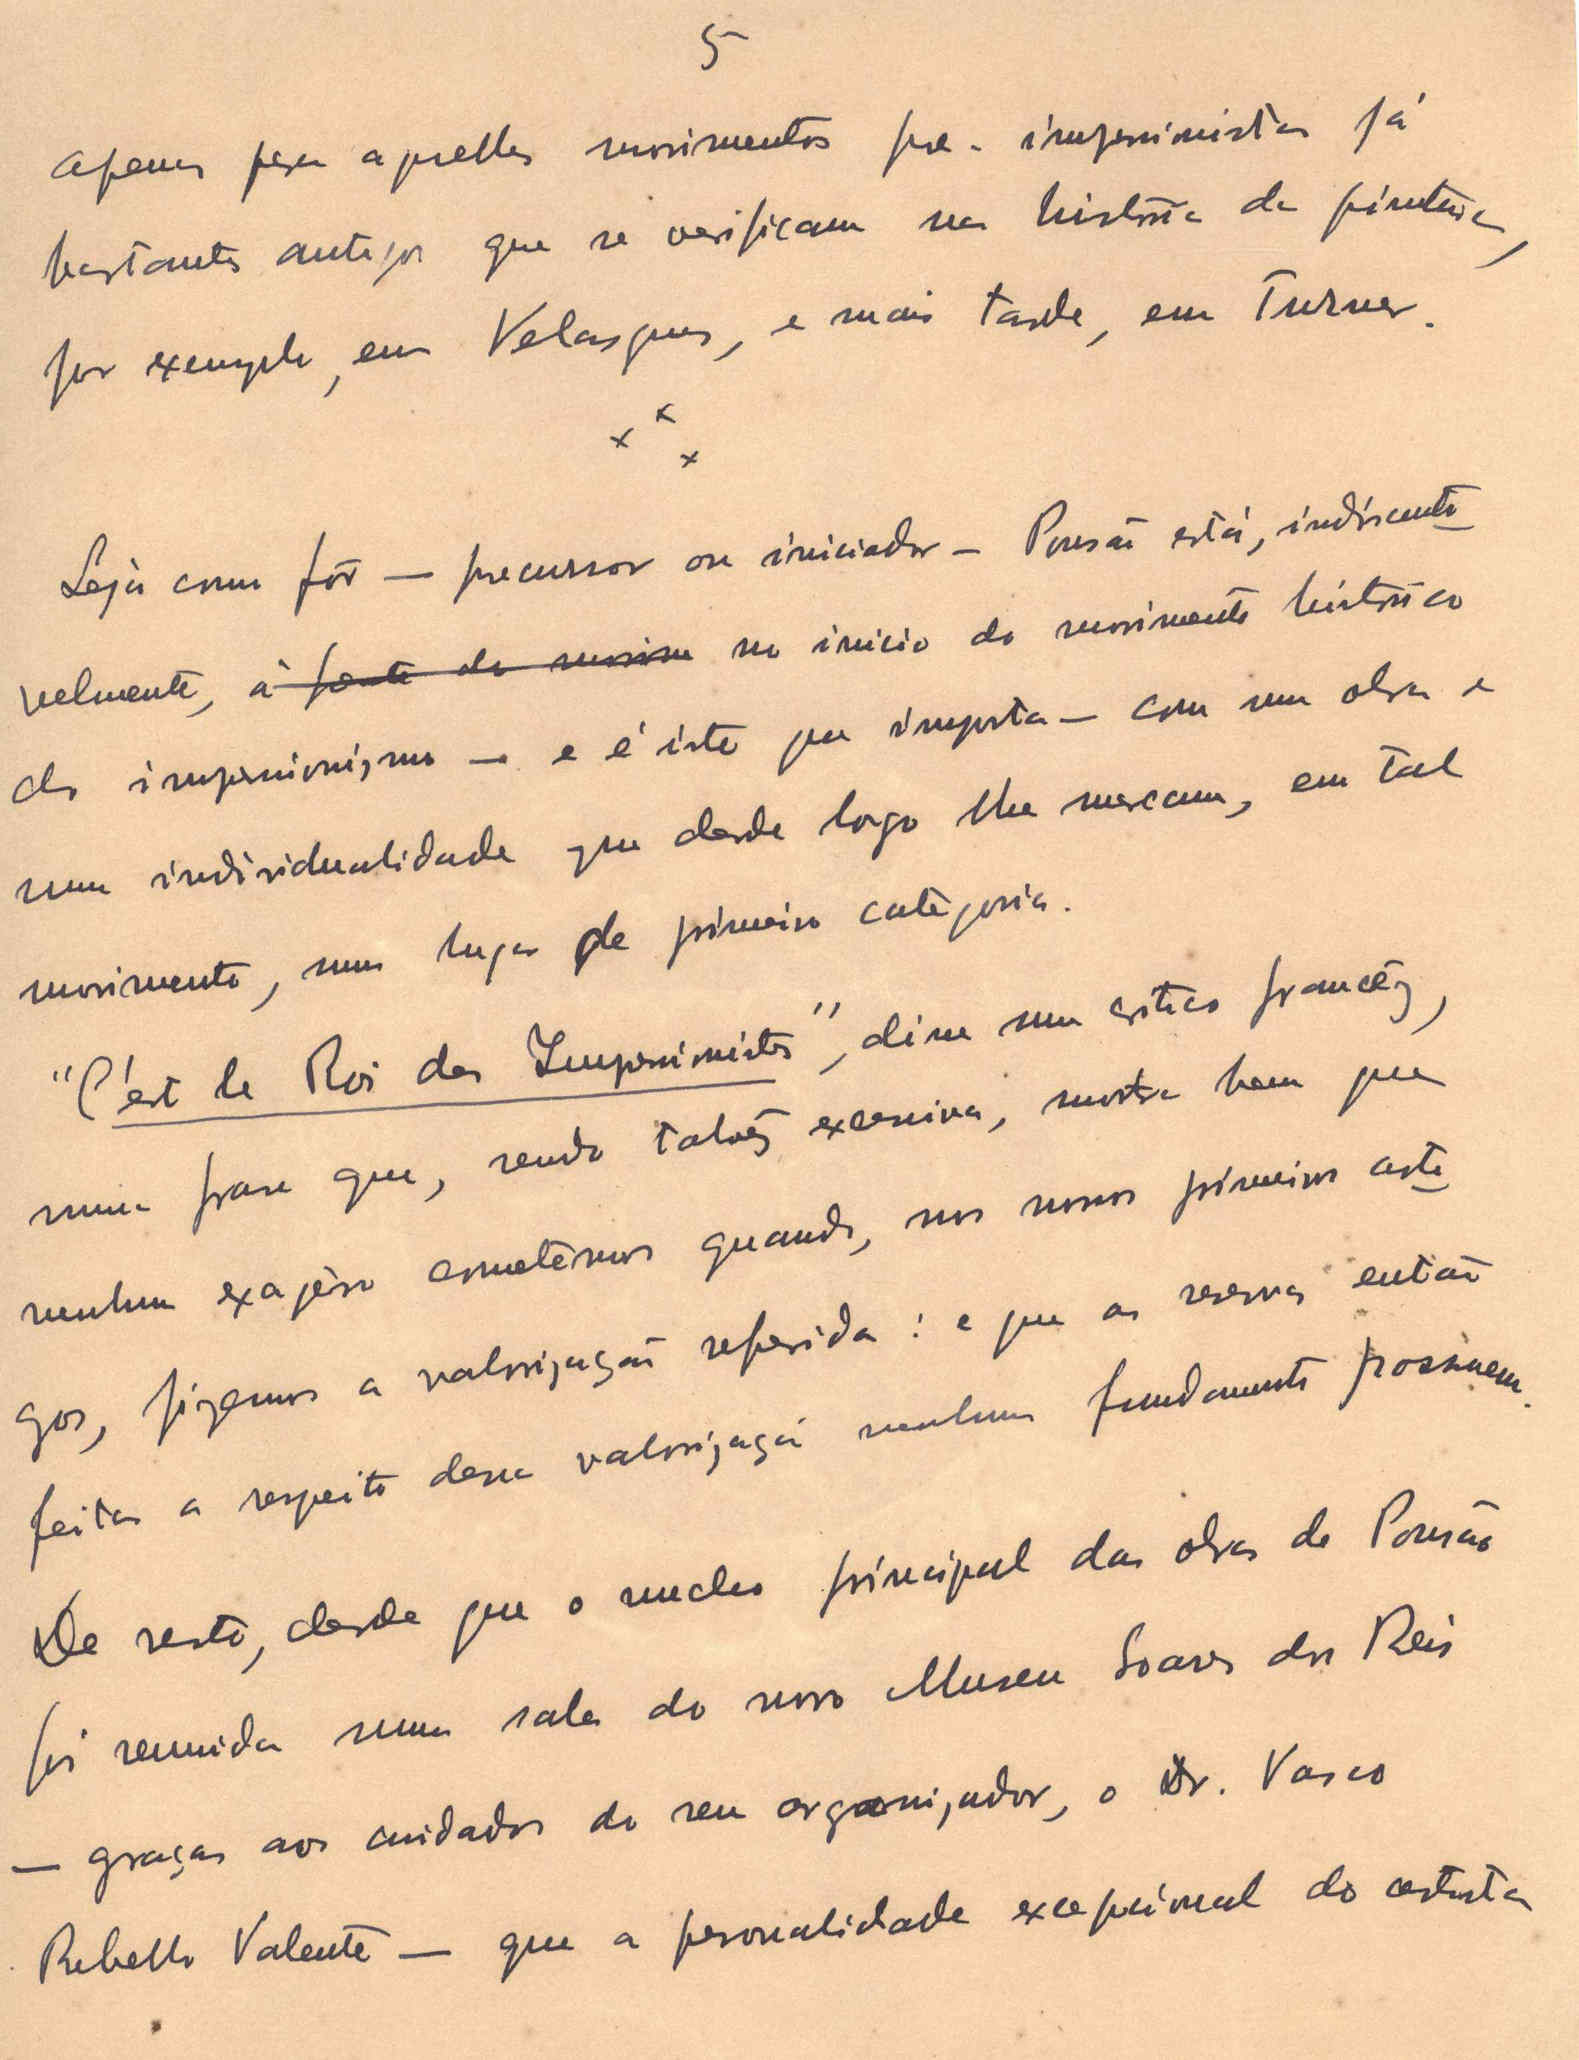 5
apenas para aquelles movimentos pre-impressionistas já
bastantes antigos que se verificam na história da pintura,
por exemplo, em Velasques, e mais tarde, em Turner.
x x x
Seja como fôr — precursor ou iniciador — Pousão está, indiscuti
velmente, à fonte do movim no inicio do movimento histórico
do impressionismo — e é isto que importa — com uma obra e
uma individualidade que desde logo lhe marcam, em tal
movimento, um lugar de primeira categoria.
"C'est le Roi des Impressionistes", disse um critico francêz,
numa frase que, sendo talvêz excessiva, mostra bem que
nenhum exagêro cometêmos quando, nos nossos primeiros arti
gos, fizemos a valorização referida: e que as reservas então
feitas a respeito dessa valorização nenhum fundamento possuem.
De resto, desde que o nucleo principal das obras de Pousão
foi reunida numa sala do novo Museu Soares dos Reis
— graças aos cuidados do seu organizador, o Dr. Vasco
Rebello Valente — que a personalidade excepcional do artista